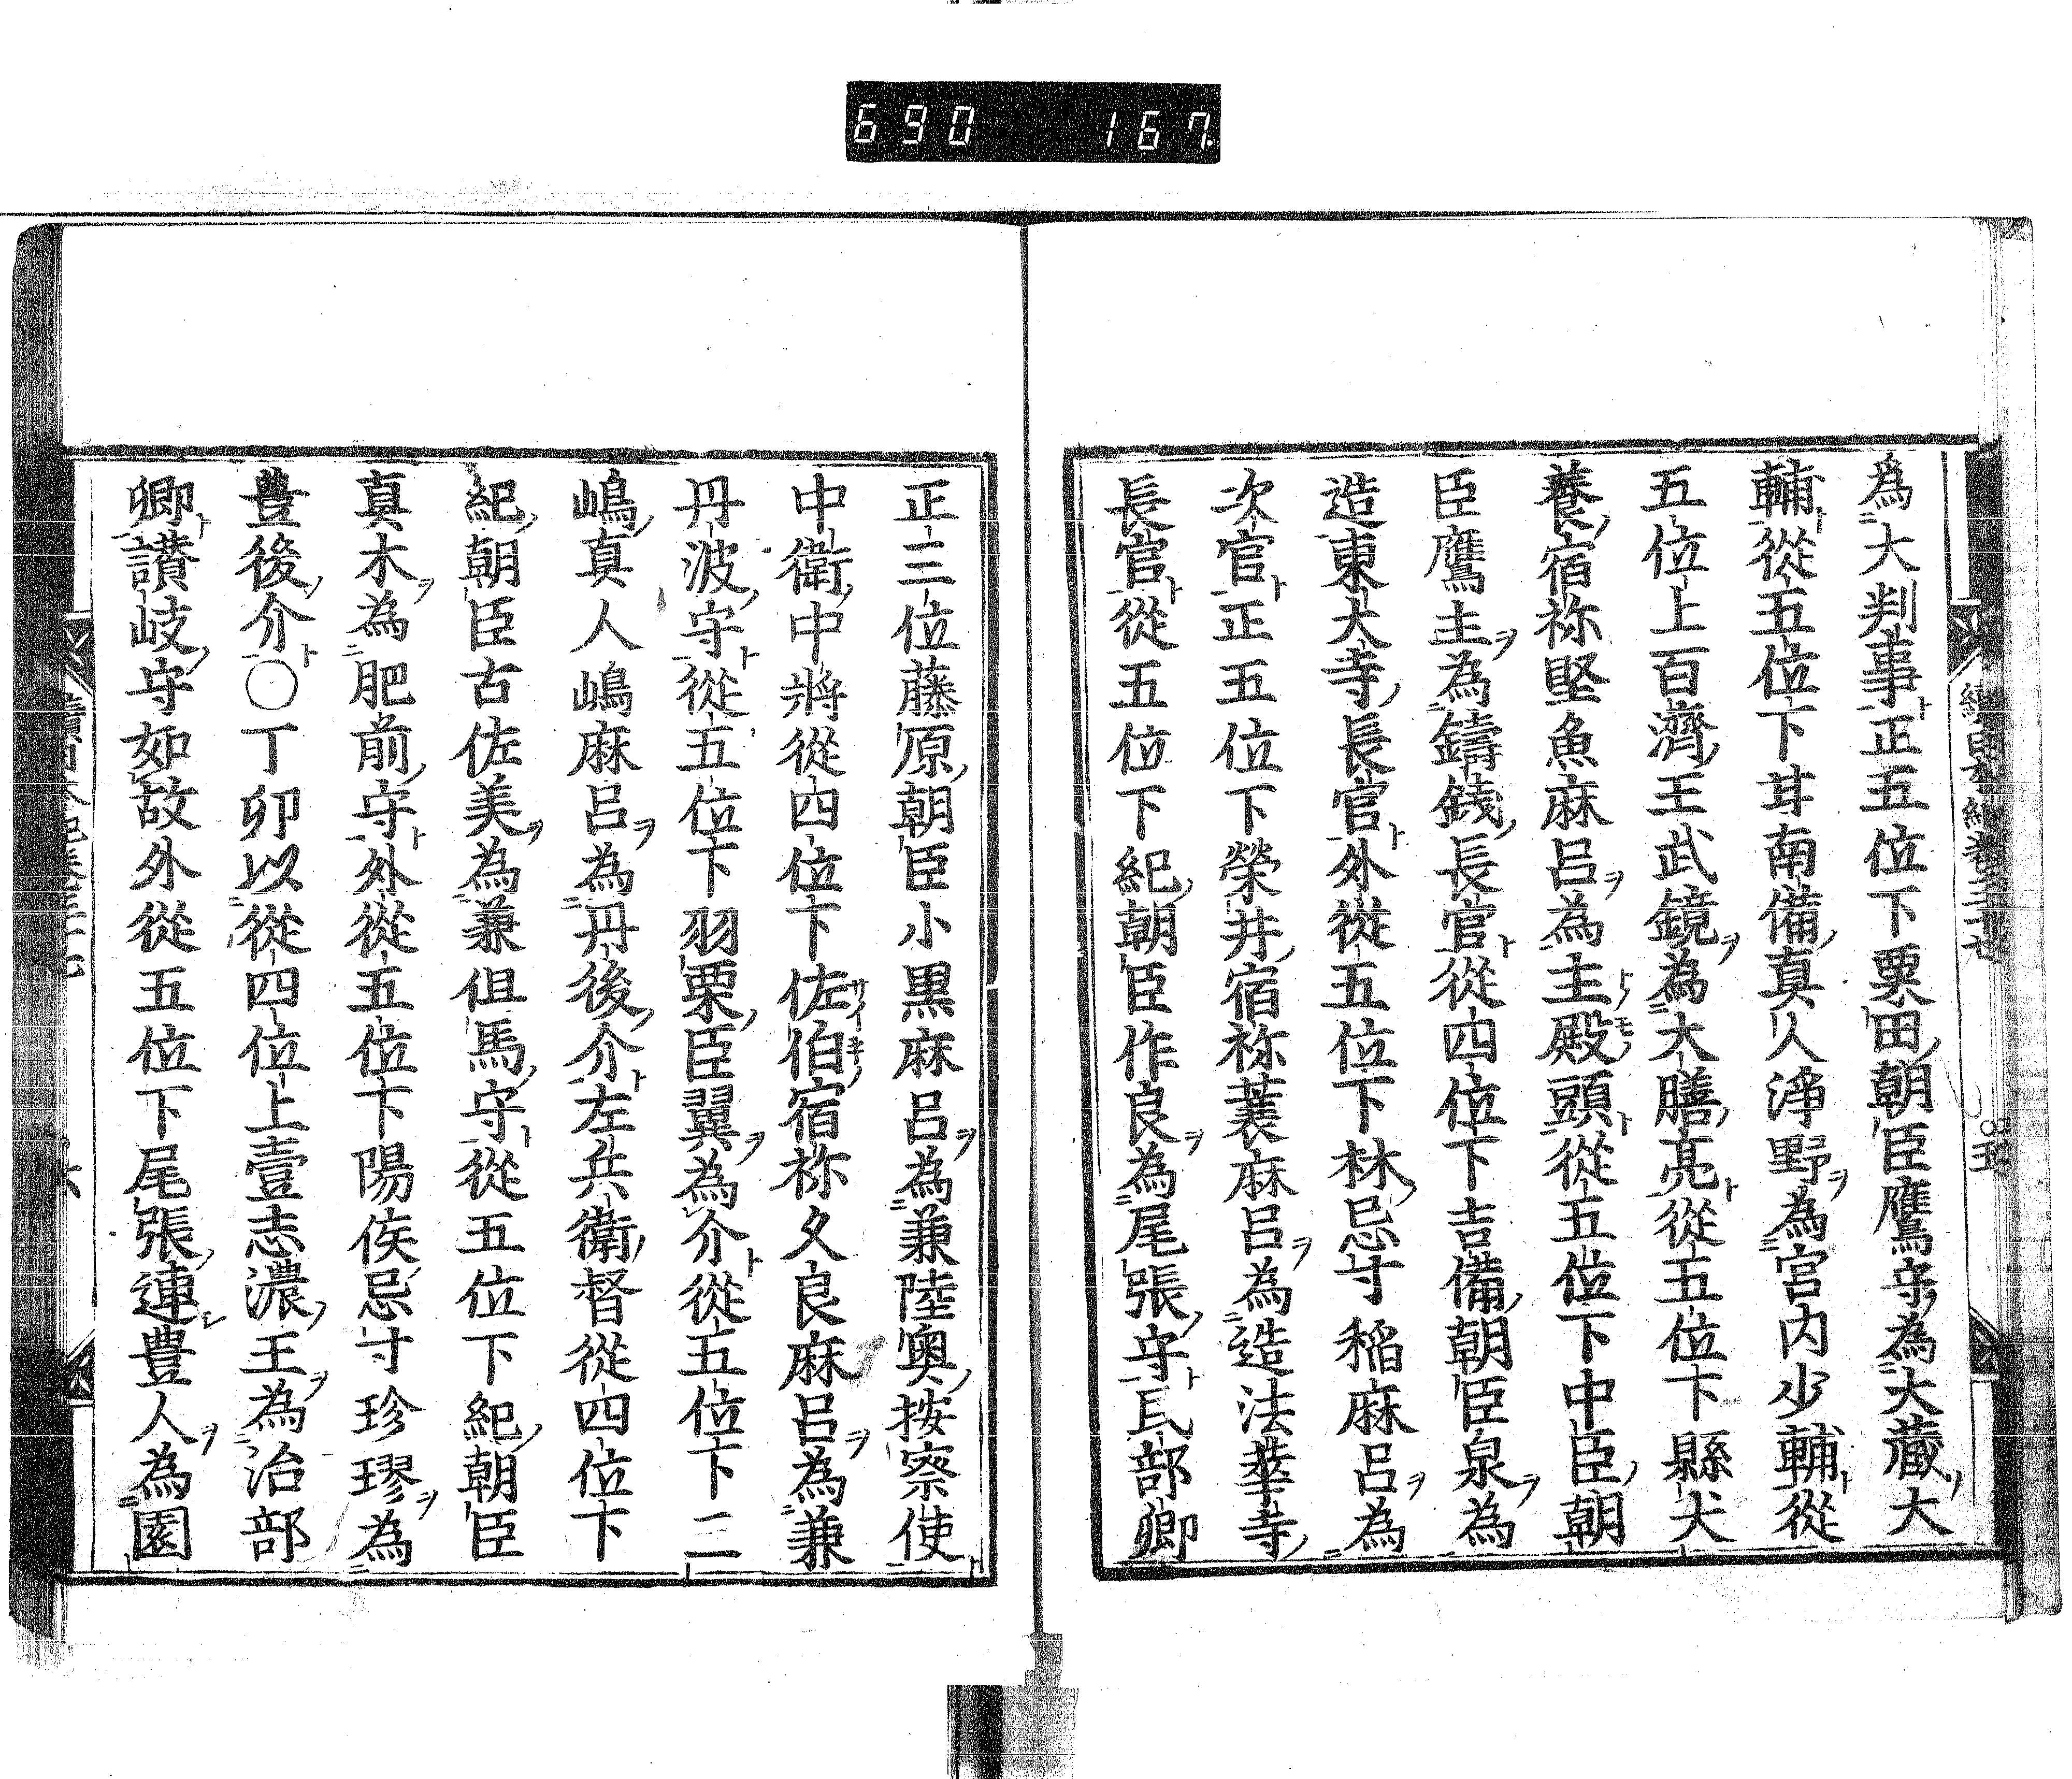 690 167
為大判事正五位下粟田朝臣鷹守為大藏大
輔從五位下甘南備真人淨野為宮内少輔從
五位上百濟王武鏡為大膳亮從五位下縣犬
養宿祢堅魚麻呂為主殿頭從五位下中臣朝
臣鷹主為鑄錢長官從四位下吉備朝臣泉為
造東大寺長官外從五位下林忌寸稻麻呂為
次官正五位下榮井宿祢蓑麻呂為造法華寺
長官從五位下紀朝臣作良為尾張守民部卿
正三位藤原朝臣小黒麻呂為兼陸奧按察使
中衛中將從四位下佐伯宿祢久良麻呂為兼
丹波守從五位下羽栗臣翼為介從五位下二
嶋真人嶋麻呂為丹後介左兵衛督從四位下
紀朝臣古佐美為兼但馬守從五位下紀朝臣
真木為肥前守外從五位下陽侯忌寸珍璆為
豊後介〇丁卯以從四位上壹志濃王為治部
卿讃岐守如故外從五位下尾張連豊人為園